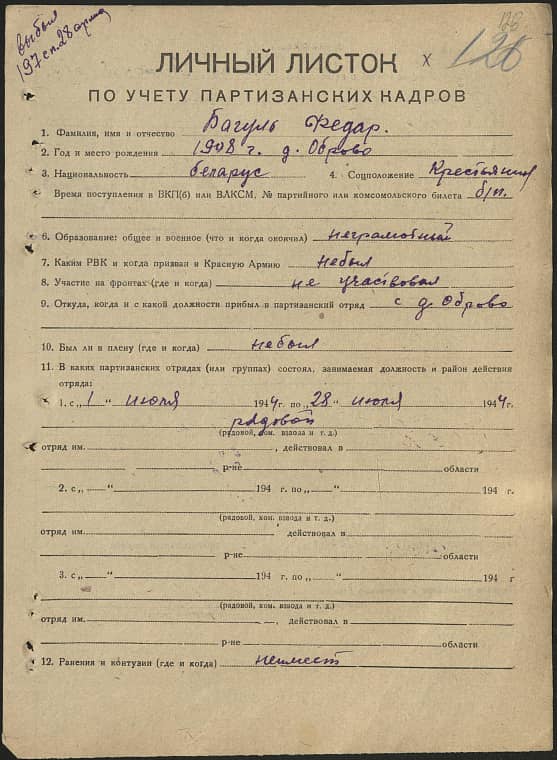 выбыл
197 сп. 28 арми
126
126
ЛИЧНЫЙ ЛИСТОК х
ПО УЧЕТУ ПАРТИЗАНСКИХ КАДРОВ
1. Фамилия, имя и отчество Багуль Федар.
2. Год и место рождения 1908 г. д. Оброво
3. Национальность беларус 4. Соцположение Крестьянин
Время поступления в ВКП(б) или ВЛКСМ, № партийного или комсомольского билета б/п.
6. Образование: общее и военное (что и когда окончил) неграмотный
7. Каким РВК и когда призван и Красную Армию небыл
8. Участие на фронтах (где и когда) не участвовал
9. Откуда, когда и с какой должности прибыл в партизанский отряд с д. Оброво
10. Был ли в плену (где и когда) небыл
11. В каких партизанских отрядах (или группах) состоял, занимаемая должность и район действия
отряда:
1. с „1“ июля 1944 г. по „28“ июля 1944 г.
рядовой
(рядовой, ком. взвода и т. д.)
отряд им. , действовал в
р-не области
2. с „ “ 194 г. по „ “ 194 г.
(рядовой, ком. взвода и т. д.)
отряд им. действовал в
р-не области
3. с „ “ 194 г. по „ “ 194 г
(рядовой, ком. взвода и т. д.)
отряд им. , действовал в
р-не области
12. Ранения и контузии (где и когда) неимеет